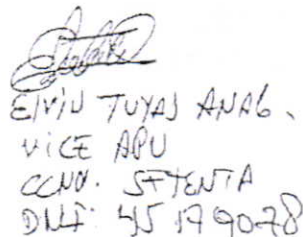 ELVIN TUYAS ANAG.
VICE APU
CCNN. SETENTA
DNI: 45179078